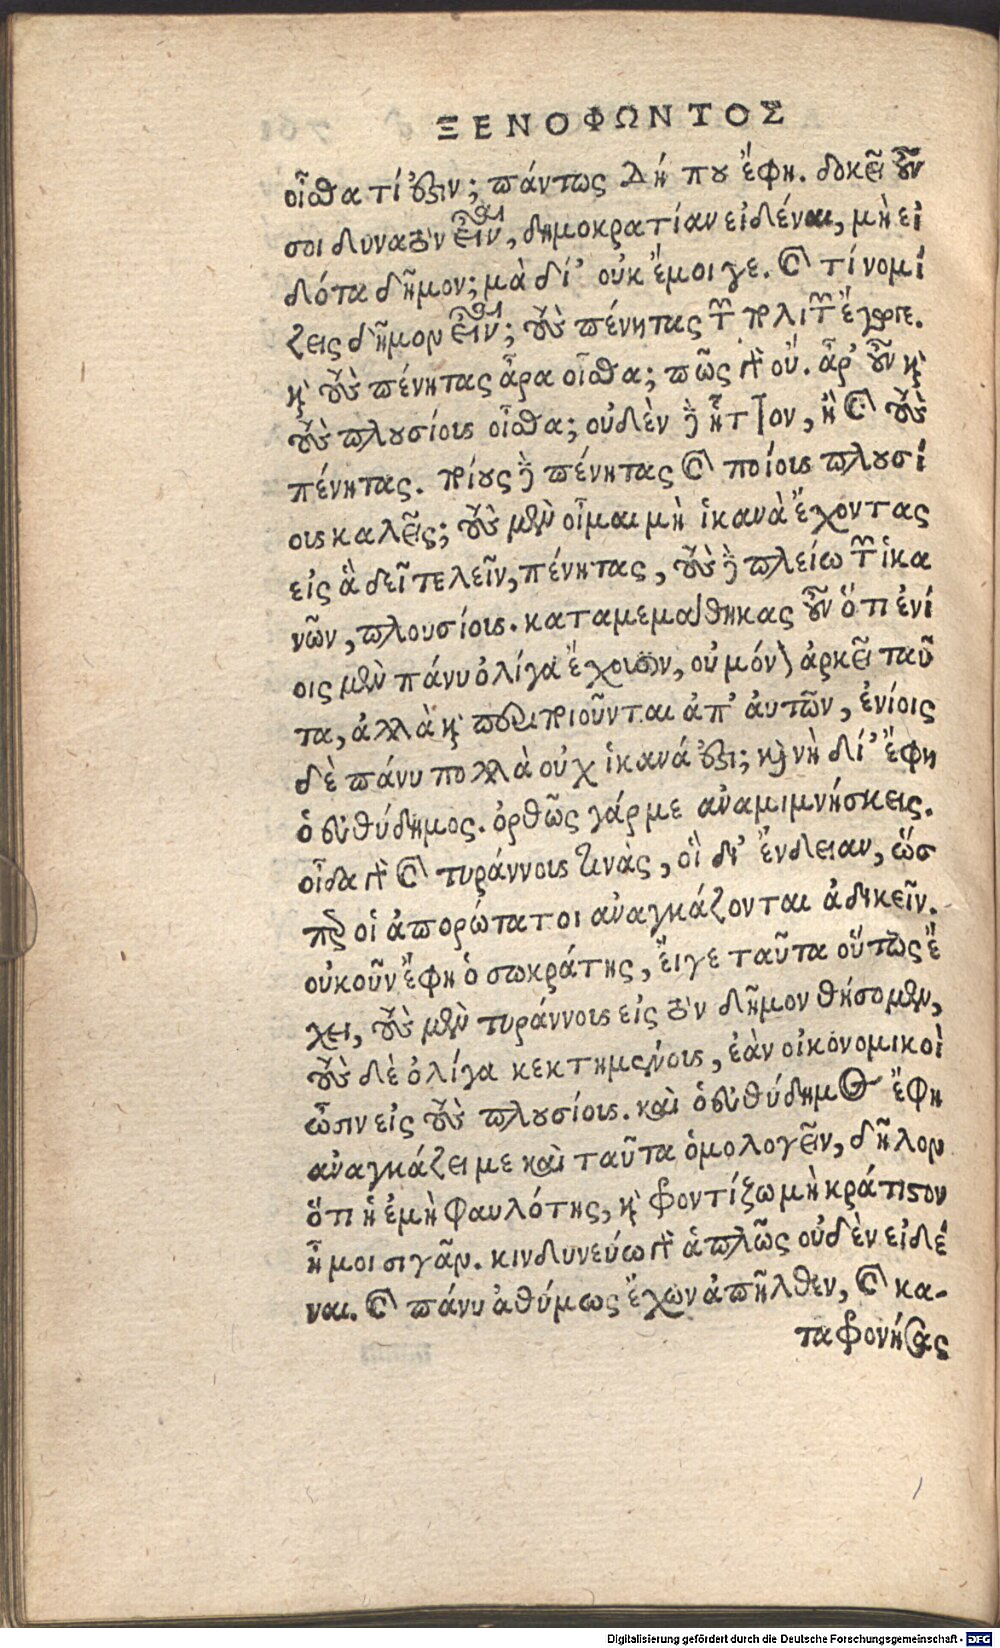 ΞΕΝΟΦΩΝΤΟΣ
οἶσθα τί ἐστιν; πάντως δή που ἔφη. δοκεῖ οὖν
σοι δυνατὸν εἶναι, δημοκρατίαν εἰδέναι, μὴ εἰ
δότα δῆμον; μὰ δί' οὐκ ἔμοιγε. καὶ τί νομί
ζεις δῆμον εἶναι; τοὺς πένητας τῶν πολιτῶν ἔγωγε.
καὶ τοὺς πένητας ἆρα οἶσθα; πῶς γὰρ οὔ. ἆρ' οὖν καὶ
τοὺς πλουσίους οἶσθα; οὐδὲν γε ἧττον, ἢ καὶ τοὺς
πένητας. ποίους δὲ πένητας καὶ ποίους πλουσί
ους καλεῖς; τοὺς μὲν οἶμαι μὴ ἱκανὰ ἔχοντας
εἰς ἃ δεῖ τελεῖν, πένητας, τοὺς δὲ πλείω τῶν ἱκα
νῶν, πλουσίους. καταμεμάθηκας οὖν ὅτι ἐνί
οις μὲν πάνυ ὀλίγα ἔχουσιν, οὐ μόνον ἀρκεῖ ταῦ
τα, ἀλλὰ καὶ περιποιοῦνται ἀπ' ἀυτῶν, ἐνίοις
δὲ πάνυ πολλὰ οὐχ ἱκανά ἐστι; καὶ νὴ δί' ἔφη
ὁ εὐθύδημος. ὀρθῶς γάρ με αναμιμνήσκεις.
οἶδα γὰρ καὶ τυράννους τινὰς, οἳ δι' ἔνδειαν, ὥσ
περ οἱ ἀπορώτατοι αναγκάζονται ἀδικεῖν.
οὐκοῦν ἔφη ὁ σωκράτης, ἔιγε ταῦτα οὕτως ἔ
χει, τοὺς μὲν τυράννους εἰς τὸν δῆμον θήσομεν,
τοὺς δὲ ὀλίγα κεκτημένους, ἐὰν οἰκονομικοὶ
ὦσιν εἰς τοὺς πλουσίους. καὶ ὁ εὐθύδημος ἔφη
αναγκάζει με καὶ ταῦτα ὁμολογεῖν, δῆλον
ὅτι ἡ ἐμὴ φαυλότης, καὶ φροντίζω μὴ κράτιστον
ᾖ μοι σιγᾶν. κινδυνεύω γὰρ ἁπλῶς οὐδὲν εἰδέ
ναι. καὶ πάνυ ἀθύμως ἔχων ἀπῆλθεν, καὶ κα-
ταφρονήσας
Digitalisierung gefördert durch die Deutsche Forschungsgemeinschaft - DFG